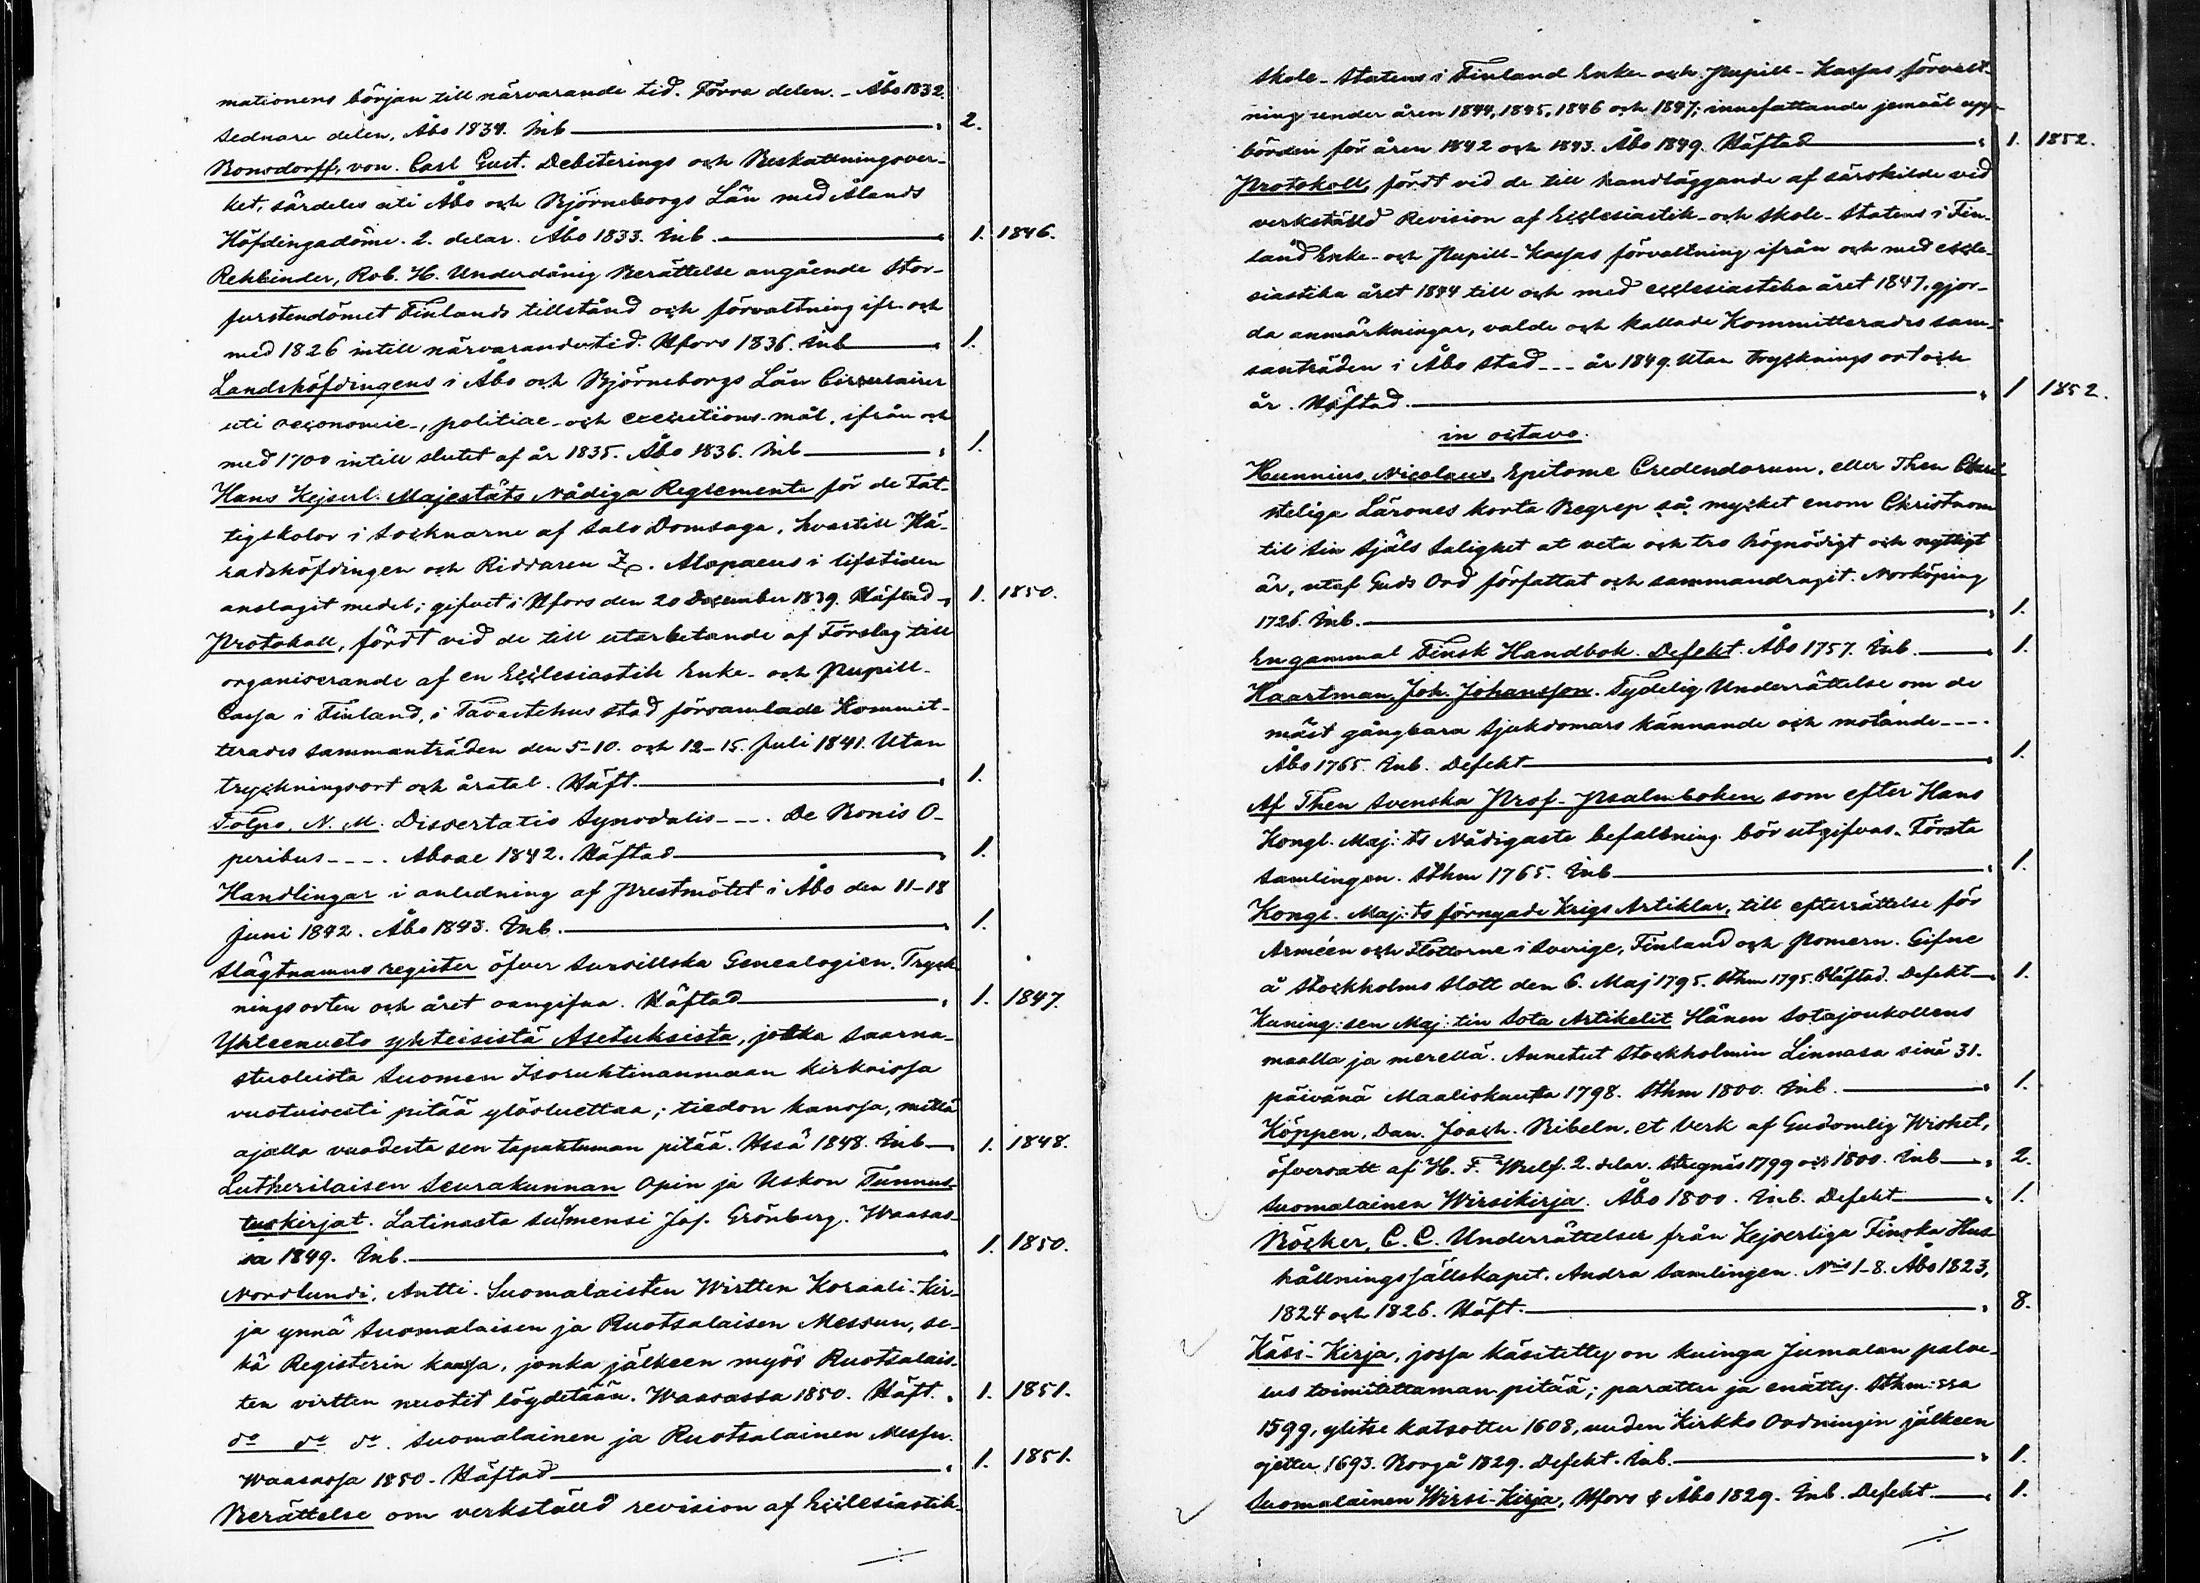 mationens början till närvarande tid. Förra delen. - Åbo 1832.
Sednare delen, Åbo 1834. Inb. 2.
Bonsdorff, von. Carl Gust. Debiterings och Beskattningsver-
ket, särdeles uti Åbo och Björneborgs Län med Ålands
Höfdingadöme. 2. delar. Åbo 1833. Inb. 1. 1846.
Rehbinder, Rob. H. Underdånig Berättelse angående Stor-
furstendömet Finlands tillstånd och förvaltning ifr. och
med 1826 intill närvarande tid. Hfors 1836. Inb 1.
Landshöfdingens i Åbo och Björneborgs Län Circulairer
uti oeconomie-, politiae- och executions-mål, ifrån och
med 1700 intill slutet af år 1835. Åbo 1836. Inb 1.
Hans Kejserl. Majestäts Nådiga Reglemente för de Fat-
tigskolor i Socknarne af Salo Domsaga, hvartill Hä-
radshöfdingen och Riddaren Z. Alopaeus i lifstiden
anslagit medel; gifvet i Hfors den 20 December 1839. Häftad 1. 1850.
Protokoll, fördt vid de till utarbetande af Förslag till
organiserande af en Ecclesiastik Enke- och Pupill-
Cassa i Finland, i Tavastehus stad församlade Kommit-
terades sammanträden den 5-10. och 12-15. Juli 1841. Utan
tryckningsort och åratal. Häft. 1.
Tolpo, N. M. Dissertatio Synodalis - - -. De Bonis O-
peribus - - - -. Aboae 1842. Häftad 1.
Handlingar i anledning af Prestmötet i Åbo den 11-18
Juni 1842. Åbo 1843. Inb. 1.
Slägtnamns register öfver Sursillska Genealogien. Tryck-
ningsorten och året oangifna. Häftad 1. 1847.
Yhteenveto yhteisistä Asetuksista, jotka Saarna-
stuoleista Suomen Isoruhtinanmaan kirkoissa
vuotuisesti pitää ylösluettaa; tiedon kanssa, millä
ajalla vuodesta sen tapahtuman pitää. Hssä 1848. Inb 1. 1848.
Lutherilaisen Seurakunnan Opin ja Uskon Tunnus-
tuskirjat. Latinasta suomensi Jos. Grönberg. Waasas-
sa 1849. Inb. 1. 1850.
Nordlundi, Antti. Suomalaisten Wirtten Koraali-Kir-
ja ynnä Suomalaisen ja Ruotsalaisen Messun, se-
kä Registerin kanssa, jonka jälkeen myös Ruotsalais-
ten virtten nuotit löydetään. Waasassa 1850. Häft. 1. 1851.
do do do. Suomalainen ja Ruotsalainen Messu.
Waasassa 1850. Häftad 1. 1851.
Berättelse om verkställd revision af Ecclesiastik-
./.
Skole-Statens i Finland Enke- och Pupill-Kassas förvalt-
ning under åren 1844, 1845, 1846 och 1847; innefattande jemväl upp-
börden för åren 1842 och 1843. Åbo 1849. Häftad 1. 1852.
Protokoll, fördt vid de till handläggande af särskilde vid
verkställd Revision af Ecclesiastik- och Skole-Statens i Fin-
land Enke- och Pupill-Kassas förvaltning ifrån och med eccle-
siastika året 1844 till och med ecclesiastika året 1847, gjor-
da anmärkningar, valde och kallade Kommitterades sam-
manträden i Åbo stad - - - år 1849. Utan trycknings ort och
år. Häftad. 1 1852.
in octavo.
Hunnius Nicolaus, Epitome Credendorum, eller Then Chri-
steliga Lärones korta Begrep så mycket enom Christnom
til sin Själs Salighet at veta och tro högnödigt och nyttigt
är, utaf Guds Ord författat och sammandragit. Norköping
1726. Inb. 1.
En gammal Finsk Handbok. Defekt. Åbo 1757. Inb. 1.
Haartman, Joh. Johansson. Tydelig Underrättelse om de
mäst gångbara Sjukdomars kännande och motande - - - -.
Åbo 1765. Inb. Defekt 1.
Af Then Svenska Prof-Psalmboken som efter Hans
Kongl. Maj:ts Nådigaste befallning bör utgifvas. Första
Samlingen. Sthm 1765. Inb 1.
Kongl. Maj:ts förnyade Krigs Artiklar, till efterrättelse för
Arméen och Flottorne i Sverige, Finland och Pomern. Gifne
å Stockholms Slott den 6. Maj 1795. Sthm 1795. Häftad. Defekt 1.
Kuning:sen Maj:tin Sota Artikelit Hänen Sotajoukollens
maalla ja merellä. Annetut Stockholmin Linnasa sinä 31.
päivänä Maaliskuusa 1798. Sthm 1800. Inb. 1.
Köppen, Dan. Joach. Bibeln, et Verk af Gudomlig Wishet,
öfversatt af H. F. Wulf. 2. delar. Stregnäs 1799 och 1800. Inb 2.
Suomalainen Wirsikirja. Åbo 1800. Inb. Defekt 1.
Böcker, C. C. Underrättelser från Kejserliga Finska Hus-
hållningssällskapet. Andra Samlingen. Nis 1-8. Åbo 1823,
1824 och 1826. Häft. 8.
Käsi-Kirja, jossa käsitetty on kuinga Jumalan palve-
lus toimitettaman pitää; parattu ja enätty. Sthm:ssa
1599, ylitse katsottu 1608, uuden Kirkko Ordningin jälkeen
ojettu 1693. Borgå 1829. Defekt. Inb. 1.
Suomalainen Wirsi-Kirja, Hfors & Åbo 1829. Inb. Defekt 1.
./.